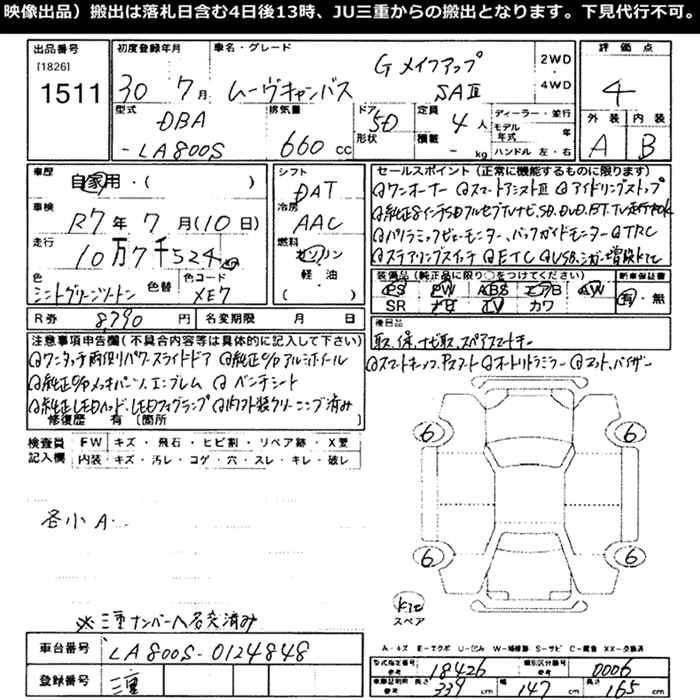 映像出品）搬出は落札日含む4日後13時、JU三重からの搬出となります。下見代行不可。
出品番号 初度登録年月 車名・グレード 評価点
[1826]
1511 30 7月 ムーヴキャンバス G メイクアップ SAⅢ 2WD・4WD 4
型式 排気量 ドア形状 定員 積載 ディーラー・並行 モデル年式 年 ハンドル 左・右 外装 内装
DBA-LA800S 660cc 5D 4人 -kg A B
車歴 自家用・( ) シフト DAT
車検 R7年7月(10日) 冷房 AAC
走行 10万7千524 燃料 ガソリン・軽油・( )
色 ミントグリーンツートン 色替 色コード XE7
R券 8,790円 名変期限 月 日
セールスポイント（正常に機能するものに限ります）
◎ワンオーナー ◎スマートアシストⅢ ◎アイドリングストップ
◎純正8インチSDフルセグTVナビ、SD、DVD、BT、TV走行中OK
◎パノラミックビューモニター、バックガイドモニター ◎TRC
◎ステアリングスイッチ ◎ETC ◎USB、シガー増設
装備品（純正品に限り○をつけてください） 新車保証書
PS PW ABS エアB AW 有・無
SR ナビ TV カワ
後日品
取、保、ナビ取、スペアスマートキー
注意事項申告欄（不具合内容等は具体的に記入して下さい）
◎ワンタッチ両側パワースライドドア ◎純正O/Pアルミホイール
◎純正O/Pメッキバンパー、エンブレム ◎ベンチシート
◎純正LEDヘッド、LEDフォグランプ ◎内外装クリーニング済み
◎スマートキー ◎オートリトラミラー ◎マット、バイザー
修復歴 有 〔箇所
検査員記入欄 FW キズ・飛石・ヒビ割・リペア跡・X要
内装・キズ・汚レ・コゲ・穴・スレ・キレ・破レ
各小A
6 6
6 6
スペア
※三重ナンバーへ名変済み
車台番号 LA800S-0124848
登録番号 三重
A-キズ E-エクボ U-凹み W-補修跡 S-サビ C-腐食 XX-交換済
型式指定番号 参考 18426 類別区分番号 参考 0006
車庫証明用 参考 長さ 339cm 幅 147cm 高さ 165cm